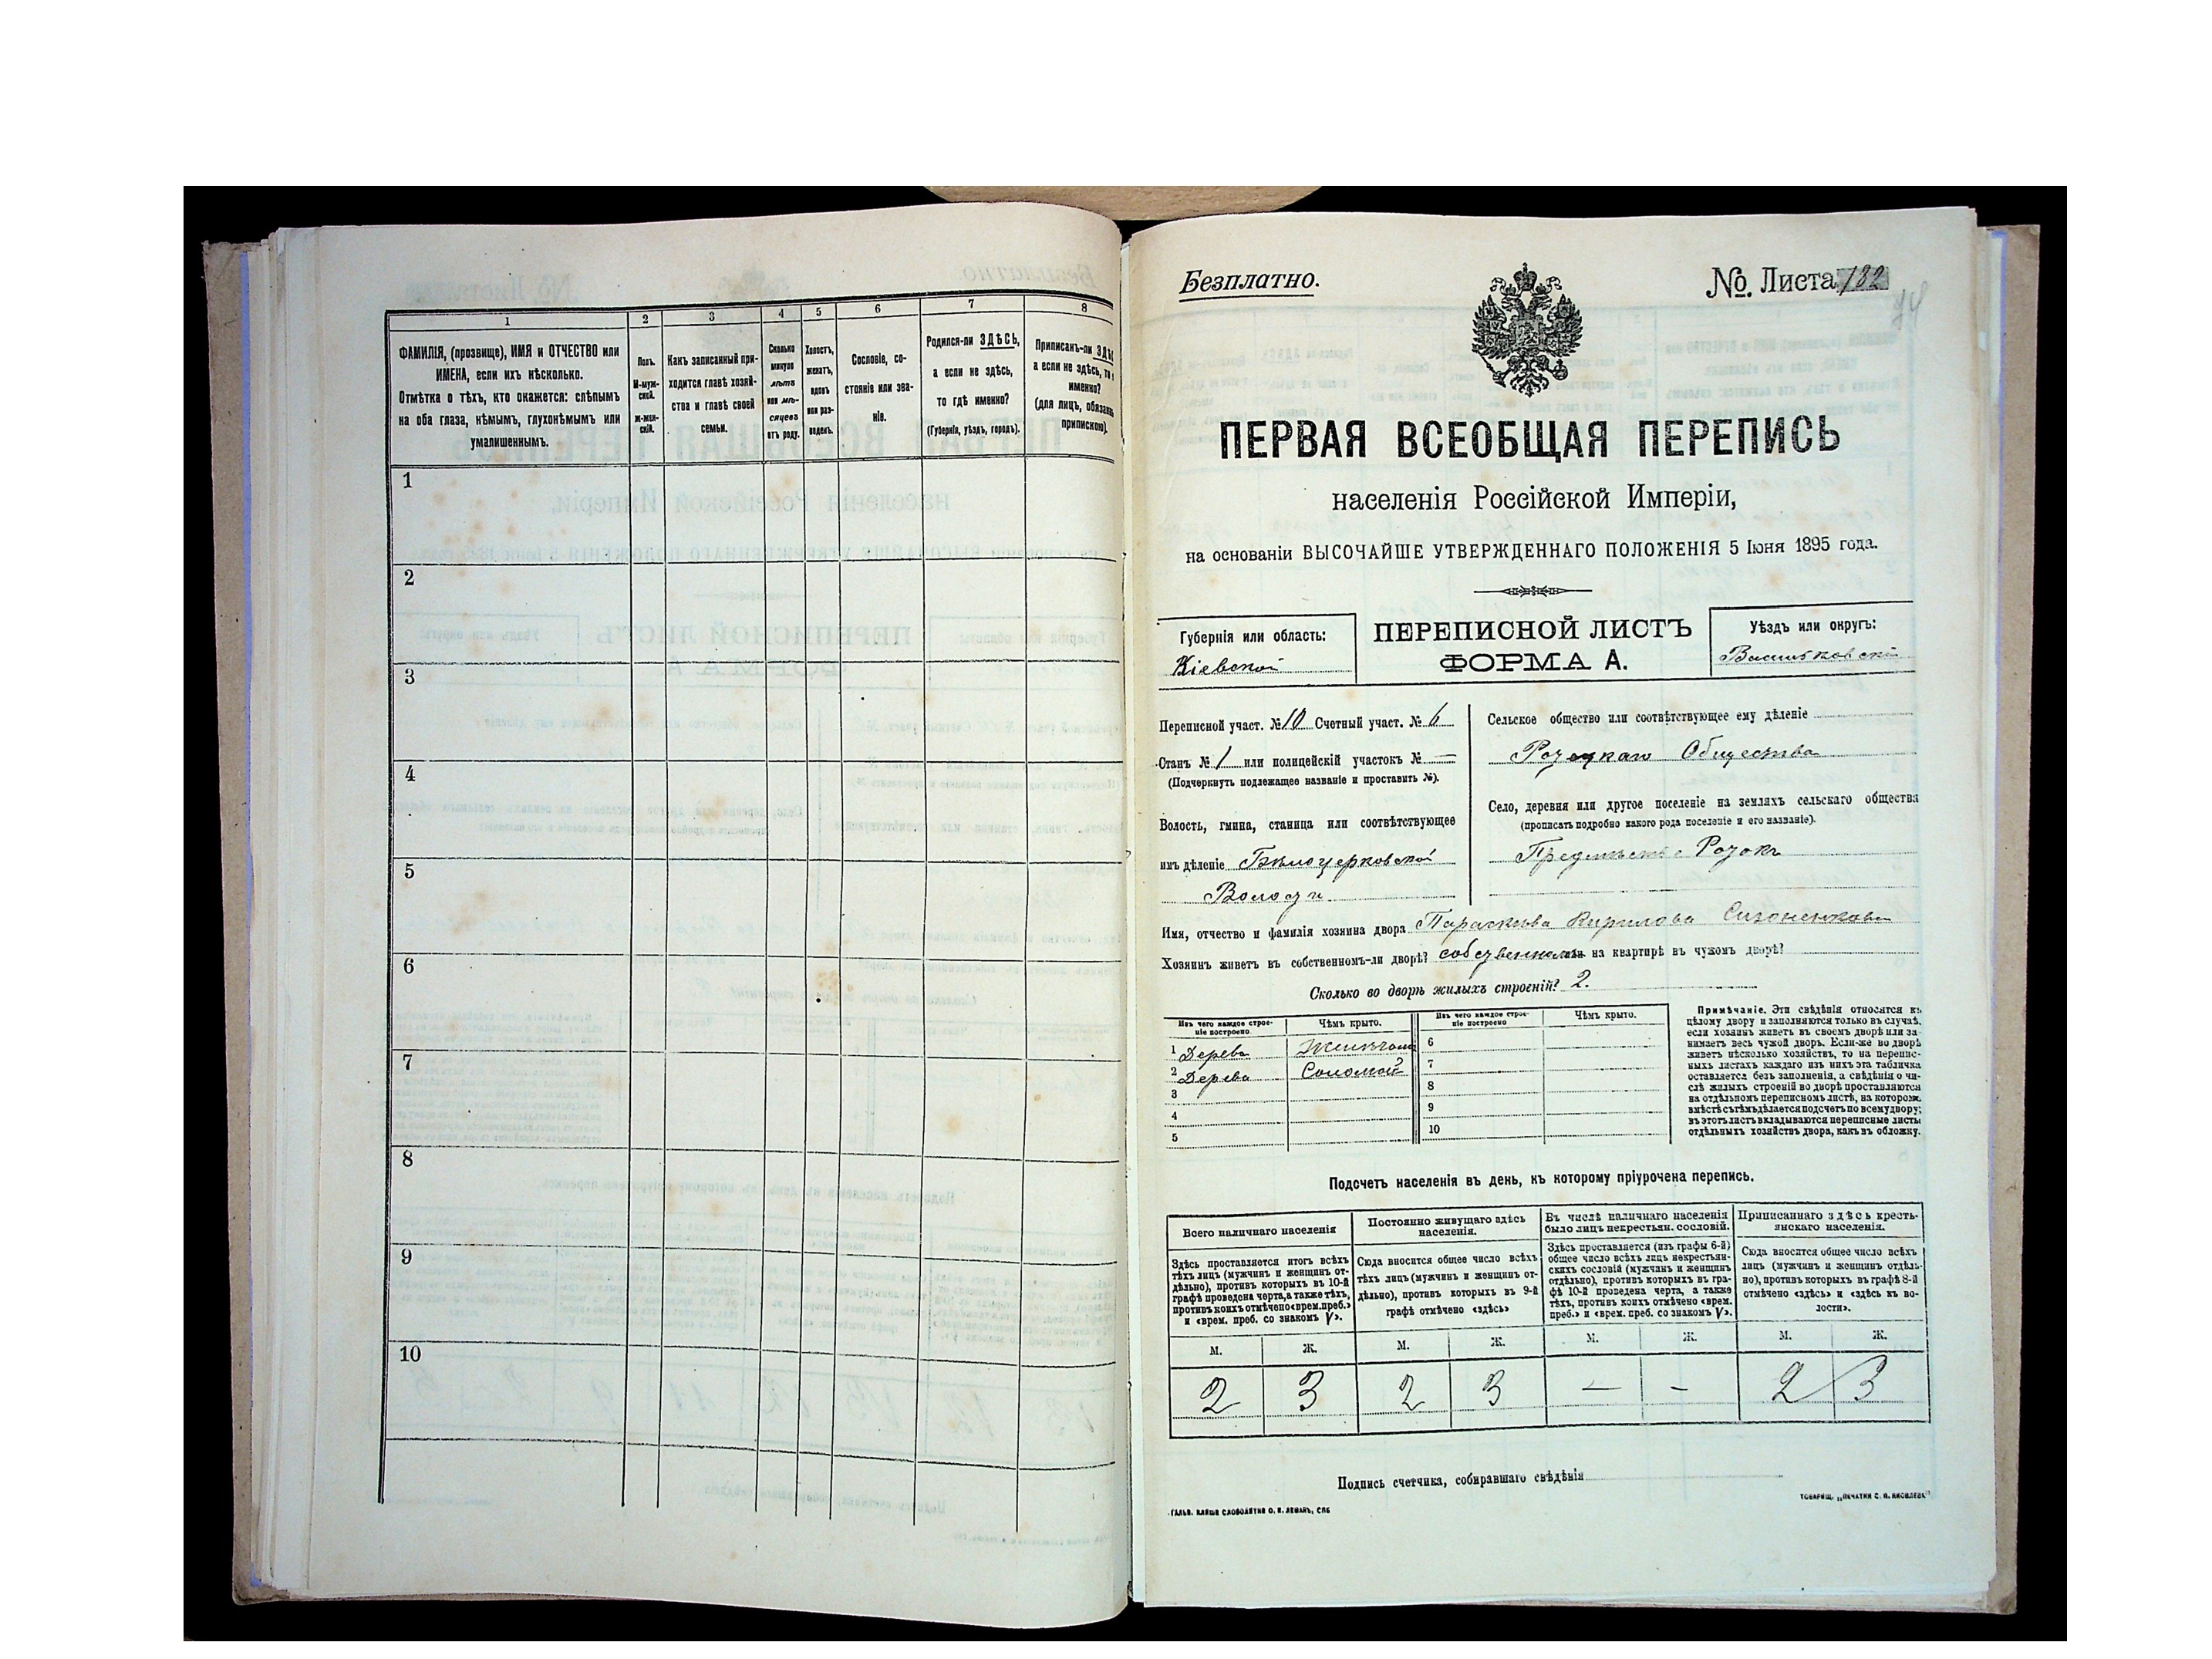 1 2 3 4 5 6 7 8
ФАМИЛІЯ, (прозвище), ИМЯ и ОТЧЕСТВО или
ИМЕНА, если ихъ нѣсколько.
Отмѣтка о тѣхъ, кто окажется: слѣпымъ
на оба глаза, нѣмымъ, глухонѣмымъ или
умалишеннымъ.
Полъ.
М-муж-
ской.
Ж-жен-
скій.
Какъ записанный при-
ходится главѣ хозяй-
ства и главѣ своей
семьи.
Сколько
минуло
лѣтъ
или мѣ-
сяцевъ
отъ роду.
Холостъ,
женатъ,
вдовъ
или раз-
веденъ.
Сословіе, со-
стояніе или зва-
ніе.
Родился-ли ЗДѢСЬ,
а если не здѣсь,
то гдѣ именно?
(Губернія, уѣздъ, городъ).
Приписанъ-ли
а если не здѣсь,
именно?
(для лицъ,
припискою).
1
2
3
4
5
6
7
8
9
10
Безплатно.
№. Листа 132
ПЕРВАЯ ВСЕОБЩАЯ ПЕРЕПИСЬ
населенія Россійской Имперіи,
на основаніи ВЫСОЧАЙШЕ УТВЕРЖДЕННАГО ПОЛОЖЕНІЯ 5 Іюня 1895 года.
Губернія или область:
Кіевской
ПЕРЕПИСНОЙ ЛИСТЪ
ФОРМА А.
Уѣздъ или округъ:
Васильковскій
Переписной участ. № 10 Счетный участ. № 6
Станъ № 1 или полицейскій участокъ № —
(Подчеркнуть подлежащее названіе и проставить №).
Волость, гмина, станица или соотвѣтствующее
имъ дѣленіе Бѣлоцерковской
Волости
Сельское общество или соотвѣтствующее ему дѣленіе
Общества
Село, деревня или другое поселеніе на земляхъ сельскаго общества
(прописать подробно какого рода поселеніе и его названіе).
Предмѣстье Ротокъ
Имя, отчество и фамилія хозяина двора Параскева Кирилова Сизоненкова
Хозяинъ живетъ въ собственномъ-ли дворѣ? собственномъ или на квартирѣ въ чужомъ дворѣ?
Сколько во дворѣ жилыхъ строеній? 2.
Изъ чего каждое строе-
ніе построено
Чѣмъ крыто.
Изъ чего каждое строе-
ніе построено
Чѣмъ крыто.
1 Дерева 6
2 Дерева Соломой 7
3 8
4 9
5 10
Примѣчаніе. Эти свѣдѣнія относятся къ
цѣлому двору и заполняются только въ случаѣ,
если хозяинъ живетъ въ своемъ дворѣ или за-
нимаетъ весь чужой дворъ. Если-же во дворѣ
живетъ нѣсколько хозяйствъ, то на перепис-
ныхъ листахъ каждаго изъ нихъ эта табличка
оставляется безъ заполненія, а свѣдѣнія о чи-
слѣ жилыхъ строеній во дворѣ проставляются
на отдѣльномъ переписномъ листѣ, на которомъ
вмѣстѣ съ тѣмъ дѣлается подсчетъ по всему двору;
въ этотъ листъ вкладываются переписные листы
отдѣльныхъ хозяйствъ двора, какъ въ обложку.
Подсчетъ населенія въ день, къ которому пріурочена перепись.
Всего наличнаго населенія
Здѣсь проставляется итогъ всѣхъ
тѣхъ лицъ (мужчинъ и женщинъ от-
дѣльно), противъ которыхъ въ 10-й
графѣ проведена черта, а также тѣхъ,
противъ коихъ отмѣчено «врем. преб.»
и «врем. преб. со знакомъ V».
Постоянно живущаго здѣсь
населенія.
Сюда вносится общее число всѣхъ
тѣхъ лицъ (мужчинъ и женщинъ от-
дѣльно), противъ которыхъ въ 9-й
графѣ отмѣчено «здѣсь»
Въ числѣ наличнаго населенія
было лицъ некрестьян. сословій.
Здѣсь проставляется (изъ графы 6-й)
общее число всѣхъ лицъ некрестьян-
скихъ сословій (мужчинъ и женщинъ
отдѣльно), противъ которыхъ въ гра-
фѣ 10-й проведена черта, а также
тѣхъ, противъ коихъ отмѣчено «врем.
преб.» и «врем. преб. со знакомъ V».
Приписаннаго здѣсь кресть-
янскаго населенія.
Сюда вносится общее число всѣхъ
лицъ (мужчинъ и женщинъ отдѣль-
но), противъ которыхъ въ графѣ 8-й
отмѣчено «здѣсь» и «здѣсь къ во-
лости».
М. Ж. М. Ж. М. Ж. М. Ж.
2 3 2 3 — - 2 3
Подпись счетчика, собиравшаго свѣдѣнія
ГАЛЬВ. КЛИШЕ СЛОВОЛИТНИ О. И. ЛЕМАНЪ, СПБ
ТОВАРИЩ. „ПЕЧАТНЯ С. П. ЯКОВЛЕВА"